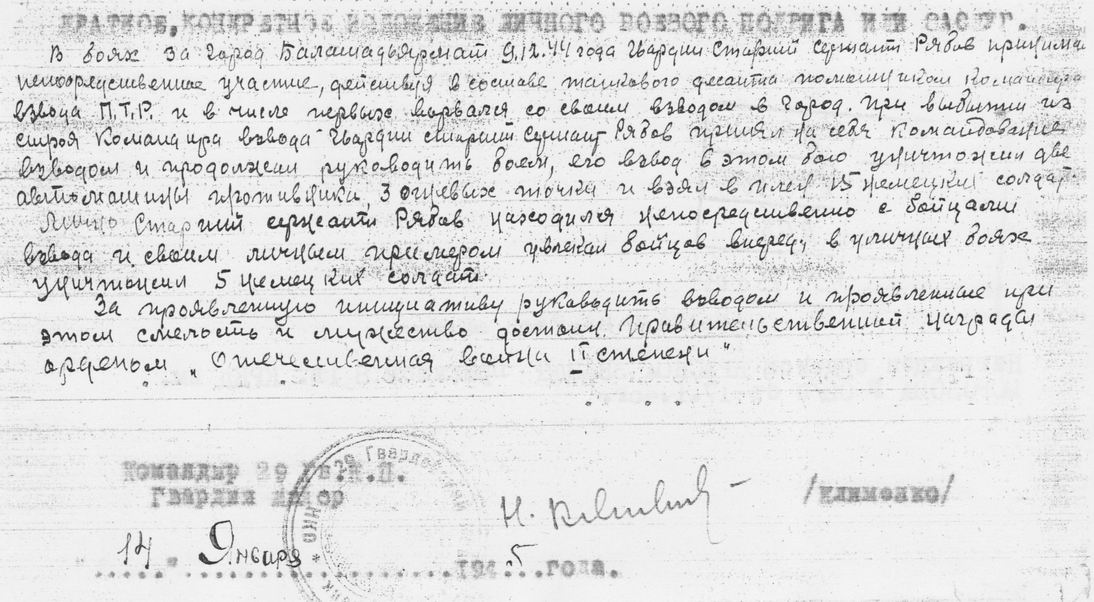 КРАТКОЕ, КОНКРЕТНОЕ ИЗЛОЖЕНИЕ ЛИЧНОГО БОЕВОГО ПОДВИГА ИЛИ ЗАСЛУГ.
В боях за город Балашадьярмат 9.12.44 года Гвардии Старший сержант Рябов принимал
непосредственное участие, действуя в составе танкового десанта помощником командира
взвода П.Т.Р. и в числе первых ворвался со своим взводом в город. При выбытии из
строя командира взвода Гвардии старший сержант Рябов принял на себя командование
взводом и продолжал руководить боем, его взвод в этом бою уничтожил две
автомашины противника, 3 огневых точки и взял в плен 15 немецких солдат.
Лично Старший сержант Рябов находился непосредственно с бойцами
взвода и своим личным примером увлекал бойцов вперед, в уличных боях
уничтожил 5 немецких солдат.
За проявленную инициативу руководить взводом и проявленные при
этом смелость и мужество достоин Правительственной награды
орденом „Отечественная война II степени"
Командир 29 Гв. К.П.
Гвардии майор /Клименко/
14 " Января 1945 года.